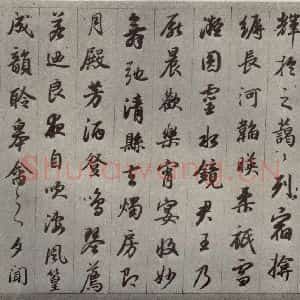 輝之藹〻列宿掩
縟長河韜映柔祇雪
凝圓靈水鏡君王乃
厭晨歡樂宵宴收妙
舞弛清縣去燭房即
月殿芳酒登鳴琴薦
若迺良夜自淒風篁
成韻聆皋禽之夕聞
Shufawang.CN